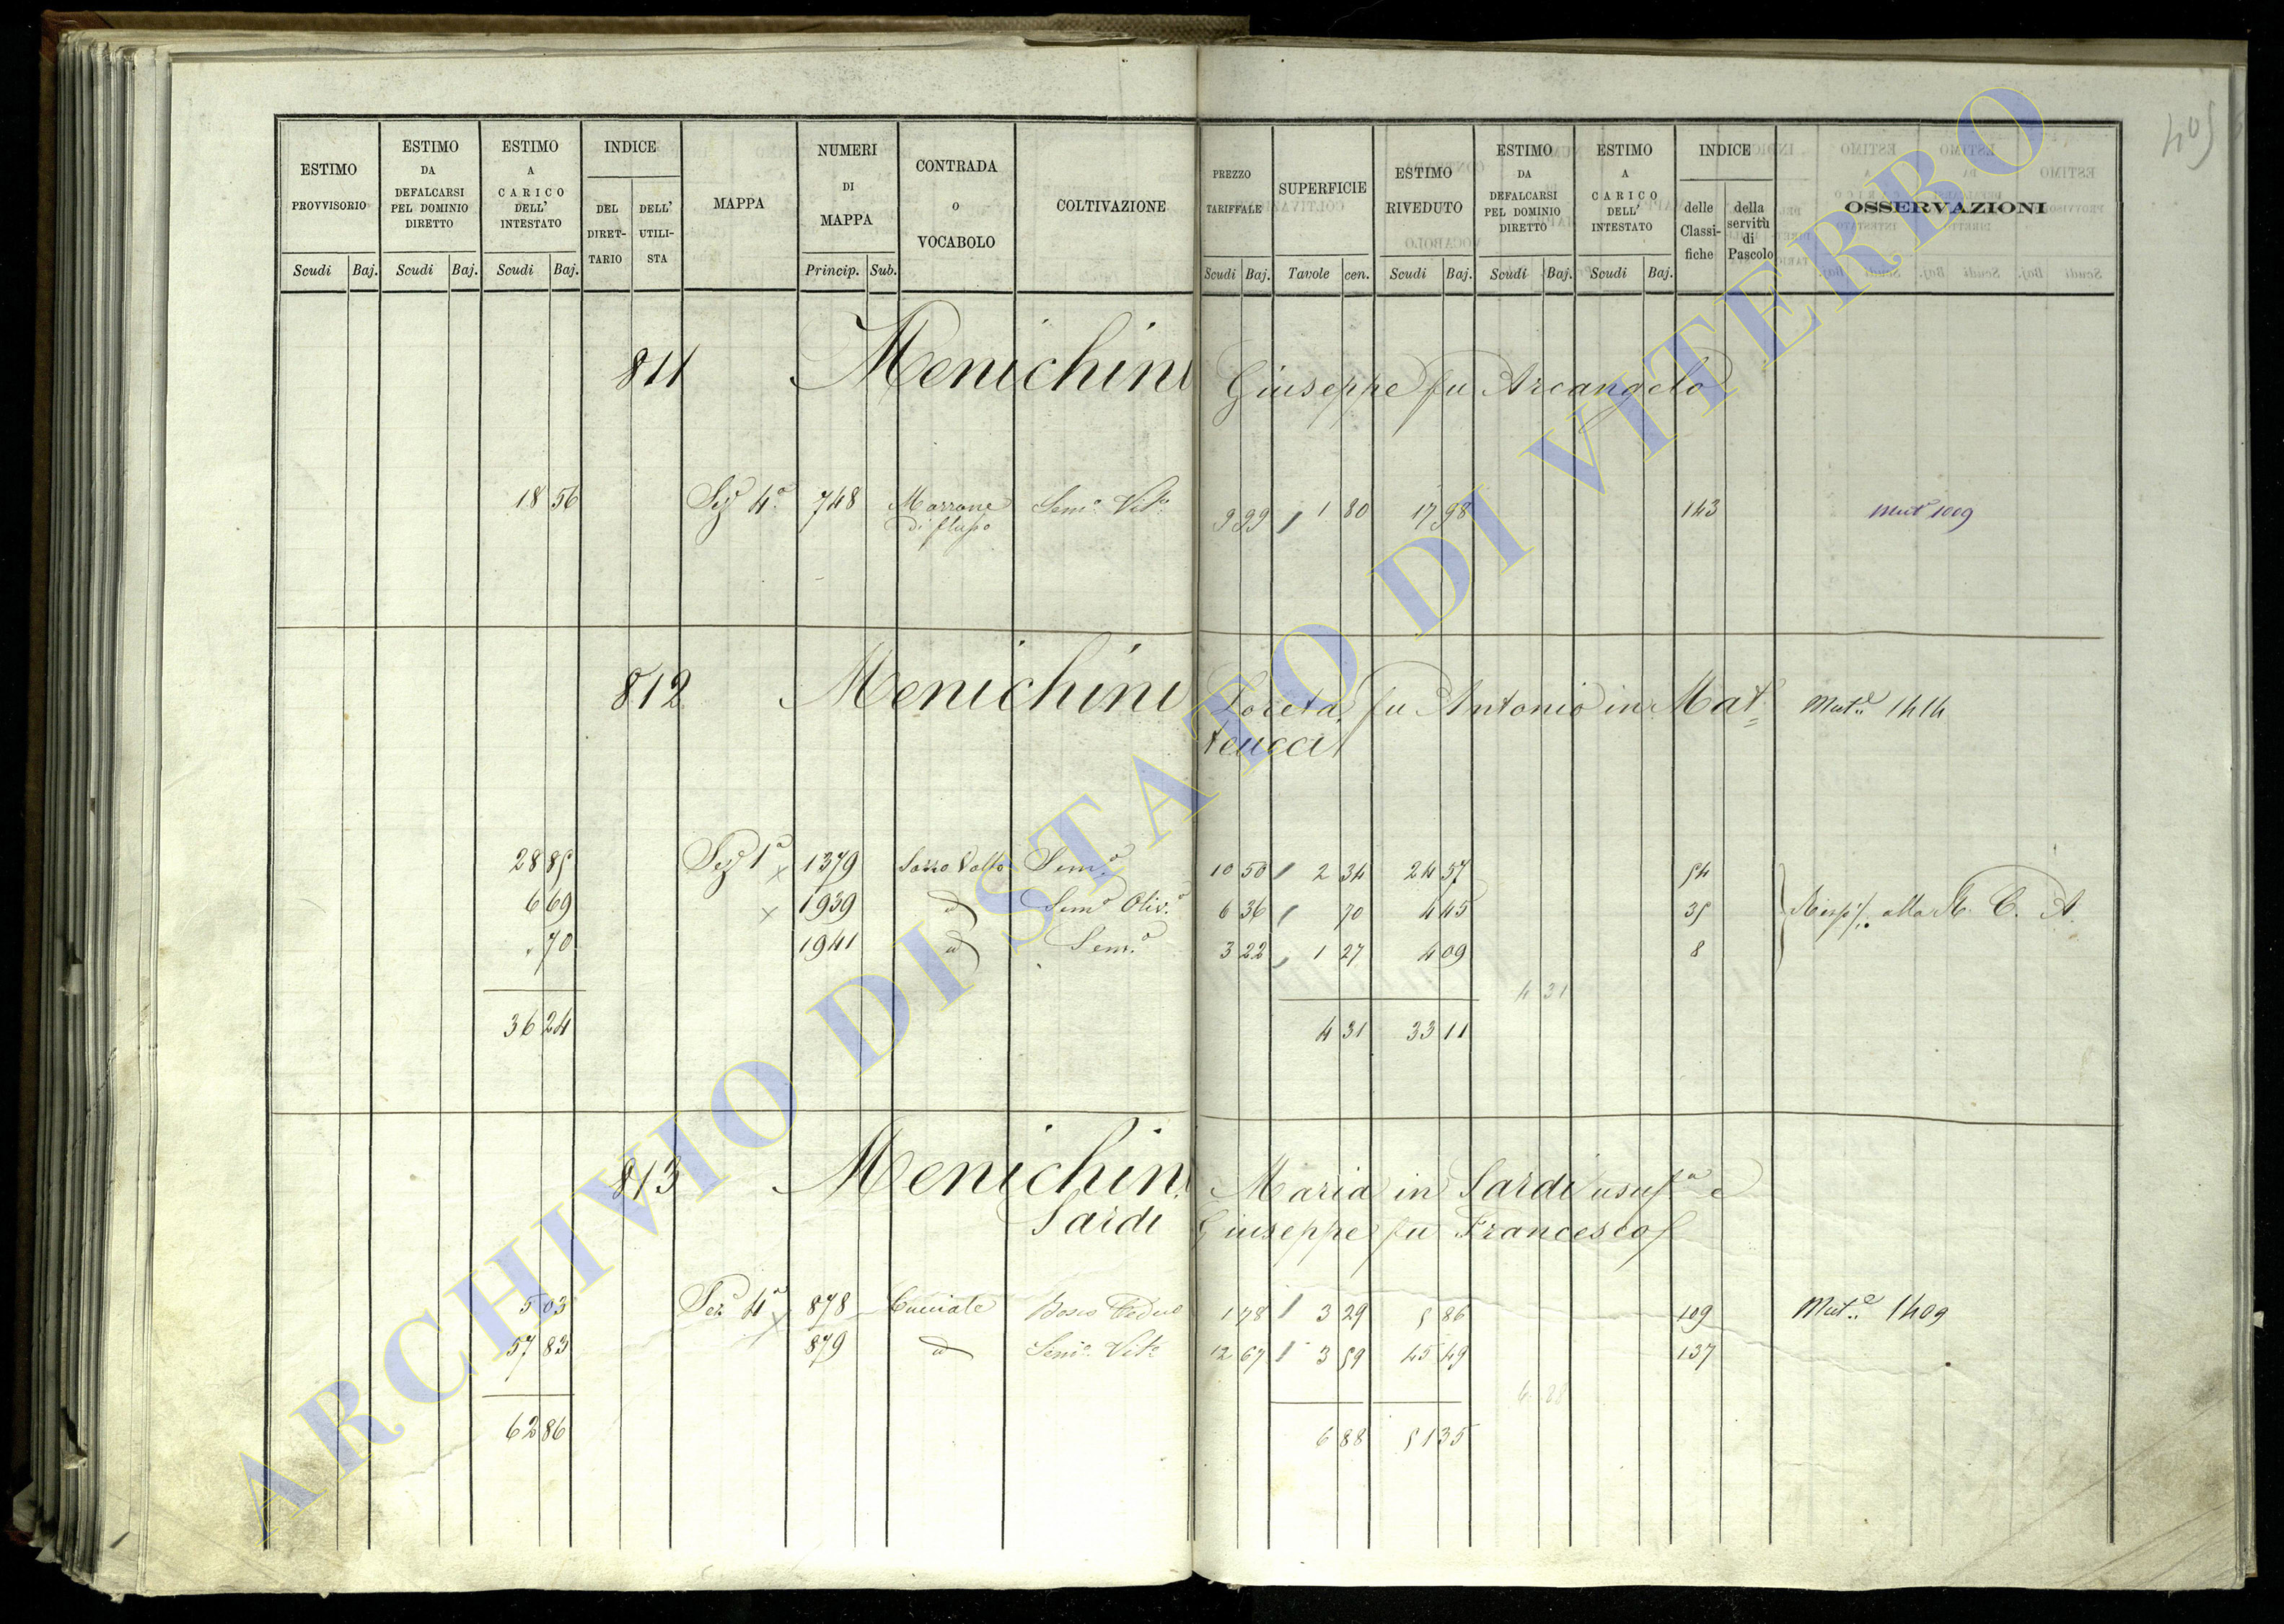 405
ESTIMO PROVVISORIO
ESTIMO DA DEFALCARSI PEL DOMINIO DIRETTO
ESTIMO A CARICO DELL' INTESTATO
INDICE
DEL DIRET-TARIO
DELL' UTILI-STA
MAPPA
NUMERI DI MAPPA
CONTRADA o VOCABOLO
COLTIVAZIONE
PREZZO TARIFFALE
SUPERFICIE
ESTIMO RIVEDUTO
ESTIMO DA DEFALCARSI PEL DOMINIO DIRETTO
ESTIMO A CARICO DELL' INTESTATO
INDICE
delle Classi-fiche
della servitù di Pascolo
OSSERVAZIONI
Scudi Baj. Scudi Baj. Scudi Baj. Princip. Sub. Scudi Baj. Tavole cen. Scudi Baj. Scudi Baj. Scudi Baj.
811 Menichini Giuseppe fu Arcangelo
18 56 Sez. 4a 748 Marrone Semo Vito 9 99 1 80 17 98 143 Mut 1009
di
812 Menichini Loreta fu Antonio in Mat= Mut.e 1414
teucci
28 85 Seze 1a x 1379 Sasso Semo 10 50 2 34 24 57 54
6 69 x 1939 d Semo Oliv.o 6 36 70 4 45 35 alla R. C. A.
70 1941 d Sem.o 3 22 1 27 4 09 8
4 31
36 24 4 31 33 11
813 Menichini Maria in Sardi usufa e
Sardi Giuseppe fu Francesco
5 03 Seze 4a x 878 Cucciale Bosco Ceduo 1 78 3 29 5 86 109 Mut.e 1409
57 83 879 d Semo Vito 12 67 3 59 45 49 137
62 86 6 88 51 35
ARCHIVIO DI STATO DI VITERBO